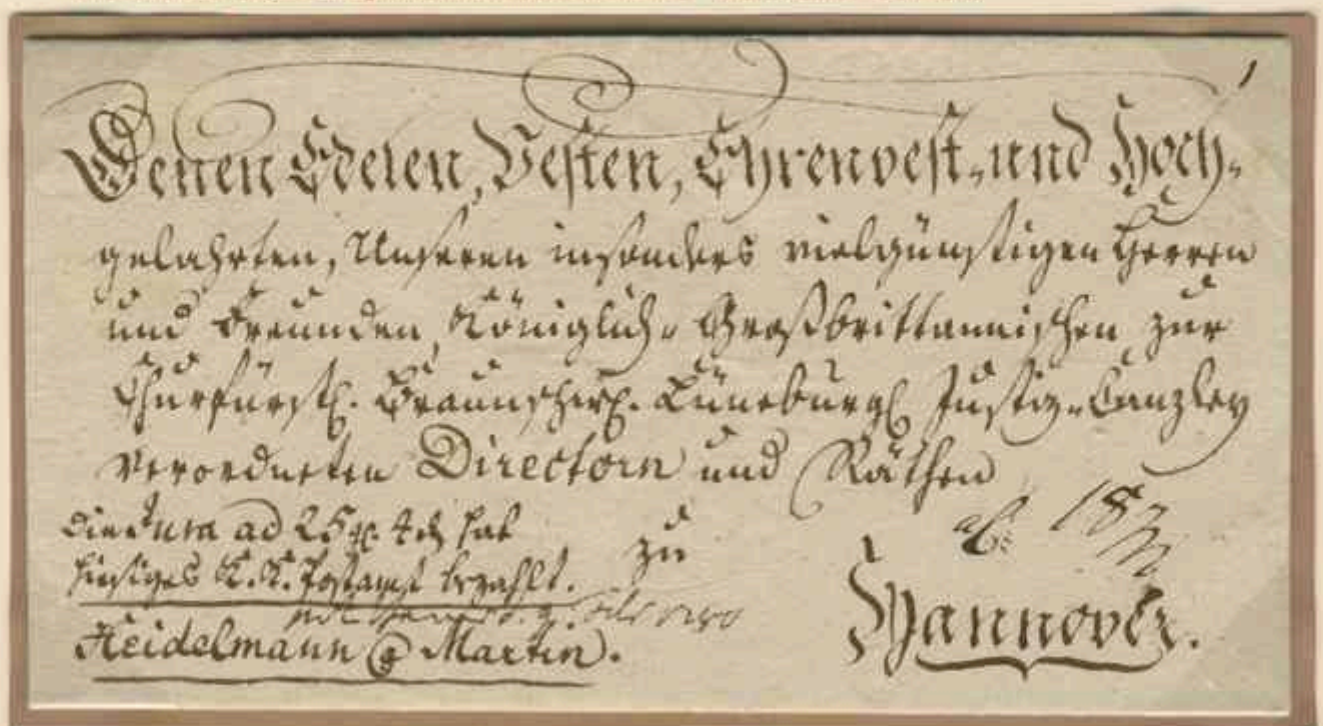 Denen Edelen, Vesten, Ehrenvest- und Hoch-
gelahrten, Unseren insonders vielgünstigen Herren
und Freunden, Königlich-Großbrittannischen, zur
Churfürstl. Braunschw. Lüneburgl. Justiz-Canzley
verordneten Directorn und Räthen
zu
Hannover.
Die Jura ad 25 4 hat
hiesiges K. K. Postamt bezahlt.
Heidelmann Martin.